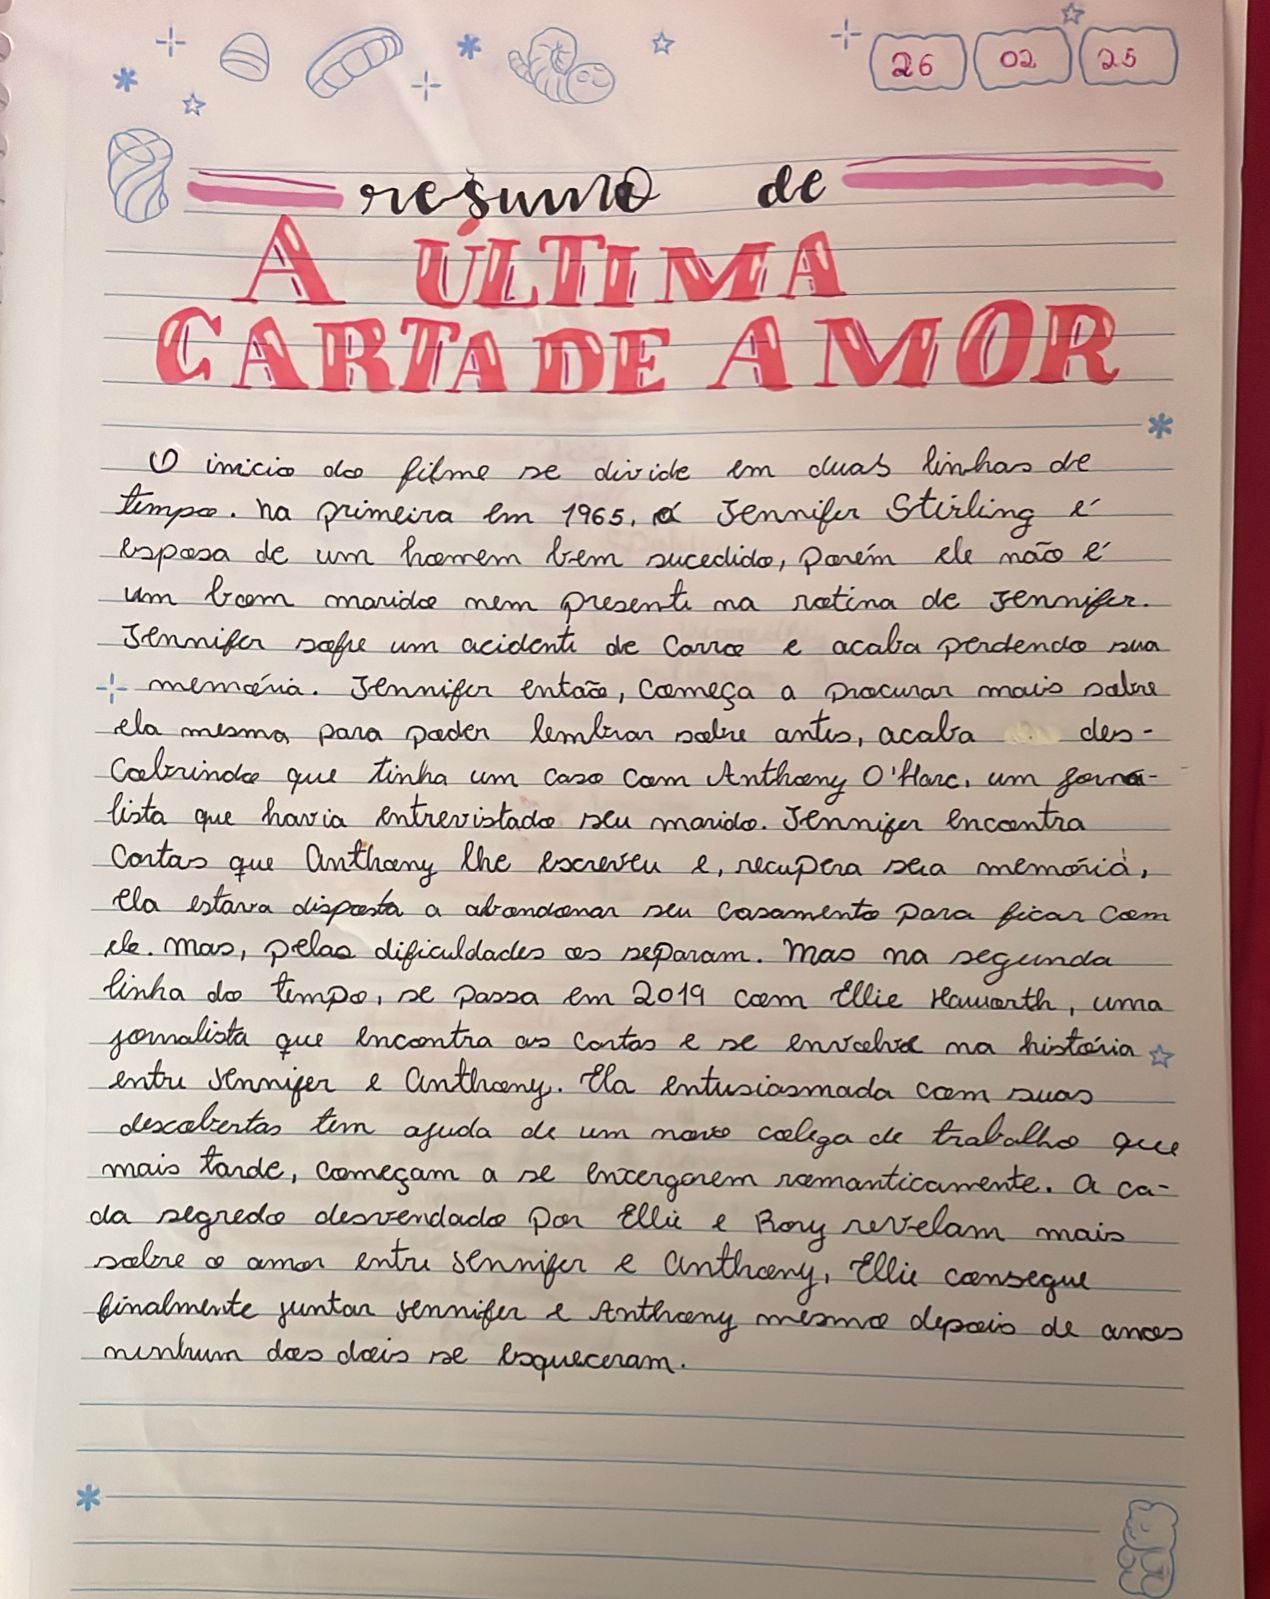 26 02 25
resumo de
A ÚLTIMA
CARTA DE AMOR
O inicio do filme se divide em duas linhas de
tempo. na primeira em 1965, a Jennifer Stirling é
esposa de um homem bem sucedido, porém ele não é
um bom marido nem presente na rotina de Jennifer.
Jennifer sofre um acidente de carro e acaba perdendo sua
memória. Jennifer então, começa a procurar mais sobre
ela mesma para poder lembrar sobre antes, acaba des-
cobrindo que tinha um caso com Anthony O'Harc, um jorna-
lista que havia entrevistado seu marido. Jennifer encontra
Cartas que Anthony lhe escreveu e, recupera sua memória,
ela estava disposta a abandonar seu casamento para ficar com
ele. mas, pelas dificuldades os separam. Mas na segunda
linha do tempo, se passa em 2019 com Ellie Hawarth, uma
jornalista que encontra as cartas e se envolve na história
entre Jennifer e Anthony. Ela entusiasmada com suas
descobertas tem ajuda de um novo colega de trabalho que
mais tarde, começam a se enxergarem romanticamente. A ca-
da segredo desvendado por Ellie e Rory revelam mais
sobre o amor entre Jennifer e Anthony, Ellie consegue
finalmente juntar Jennifer e Anthony mesmo depois de anos
ninhum dos dois se esqueceram.